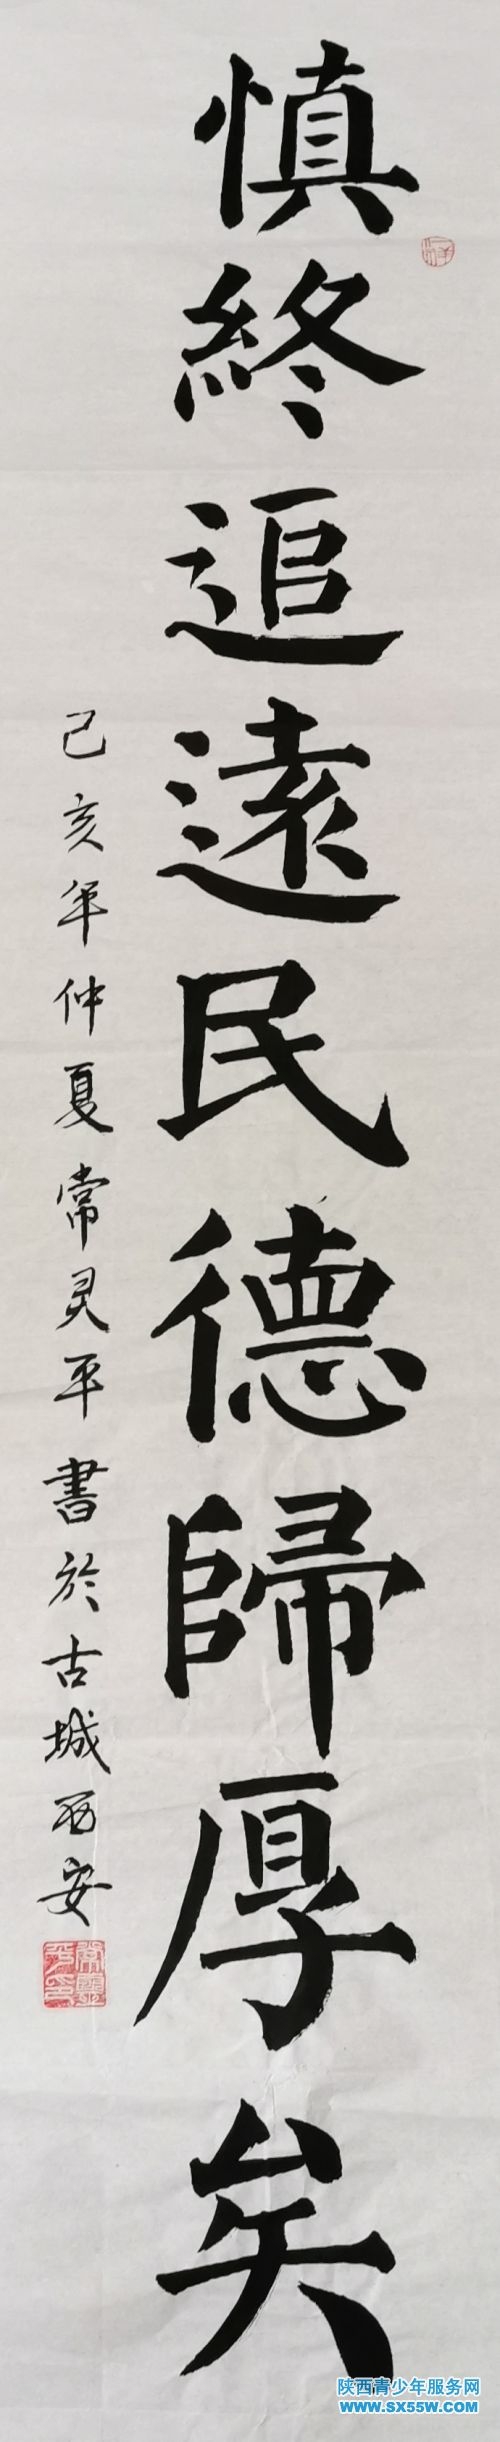 慎終追遠民德歸厚矣
己亥年仲夏常灵平書於古城西安
陕西青少年服务网
www.sx55w.com